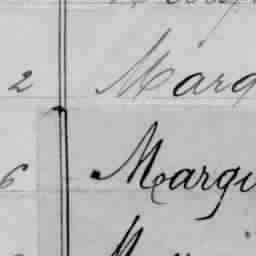 2 Marg
6 Margi